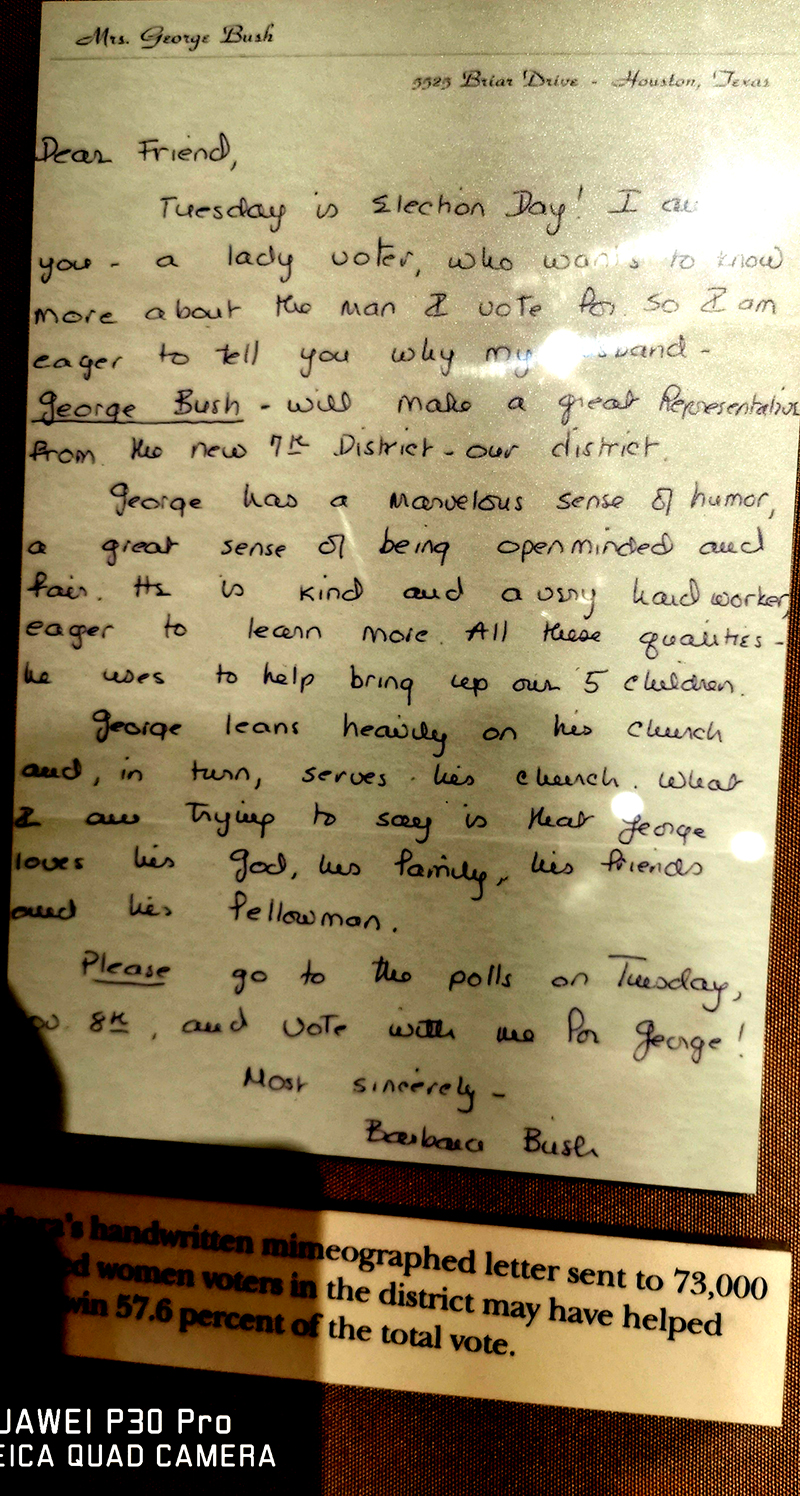 Mrs. George Bush
5525 Briar Drive - Houston, Texas
Dear Friend,
Tuesday is Election Day! I
you - a lady voter, who wants to know
more about the man I vote for. So I am
eager to tell you why my
George Bush - will make a great Representative
from the new 7th District - our district.
George has a marvelous sense of humor,
a great sense of being openminded and
fair. He is kind and a very hard worker,
eager to learn more. All these qualities -
he uses to help bring up our 5 children.
George leans heavily on his church
and, in turn, serves his church. What
I am trying to say is that George
loves his God, his family, his friends
and his fellowman.
Please go to the polls on Tuesday,
8th, and vote with me for George!
Most sincerely -
Barbara Bush
handwritten mimeographed letter sent to 73,000
women voters in the district may have helped
win 57.6 percent of the total vote.
P30 Pro
QUAD CAMERA